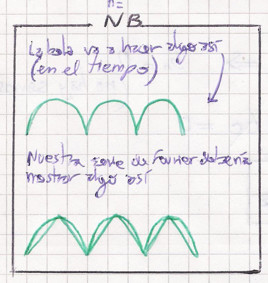 n=
N.B.
La bola va a hacer algo así
(en el tiempo)
Nuestra serie de fourier debería
mostrar algo así